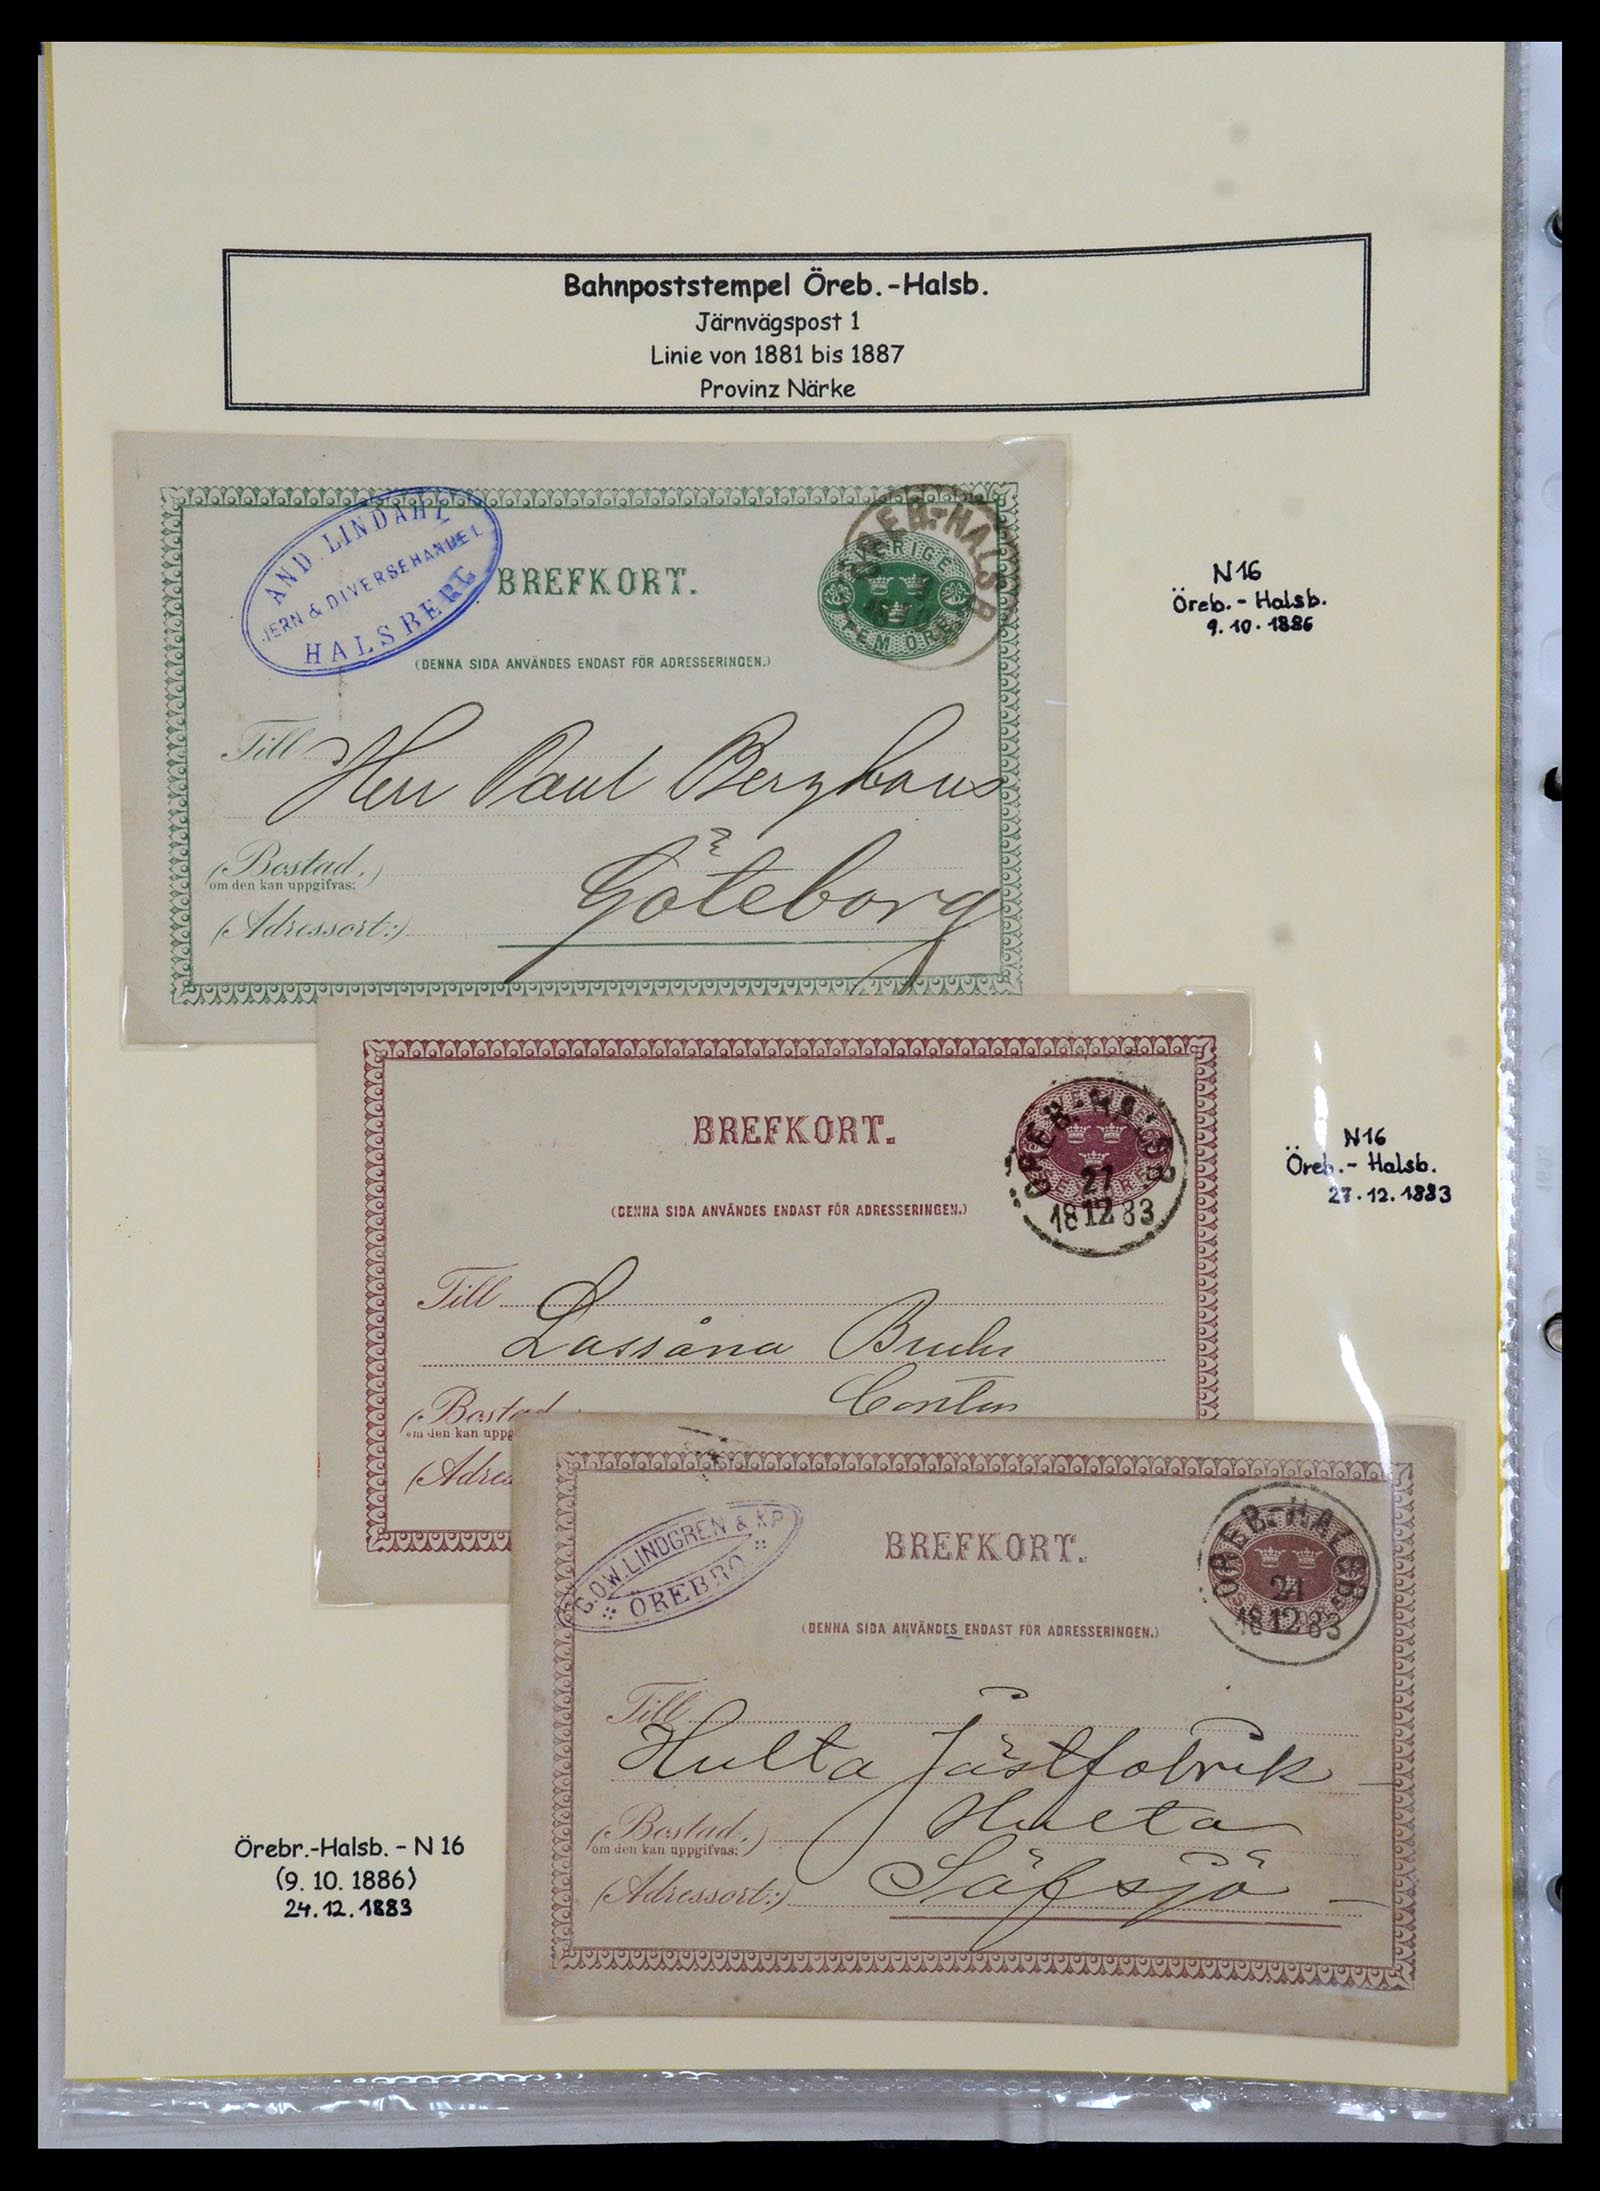 Bahnpoststempel Öreb.-Halsb.
Järnvägspost 1
Linie von 1881 bis 1887
Provinz Närke
AND. LINDAHL
JERN & DIVERSEHANDEL
HALSBERG
BREFKORT.
ÖREB.-HALSB
SVERIGE
FEM ÖRE
(DENNA SIDA ANVÄNDES ENDAST FÖR ADRESSERINGEN.)
Till Herr Paul Berghaus
(Bostad,)
om den kan uppgifvas:
Göteborg
(Adressort:)
N16
Öreb.-Halsb.
9.10.1886
BREFKORT.
ÖREB.-HALSB
27
18 12 83
(DENNA SIDA ANVÄNDES ENDAST FÖR ADRESSERINGEN.)
Till
Lassåna Bruks
Contor
(Bostad
om den kan uppg
(Adres
N16
Öreb.-Halsb.
27.12.1883
C.O.W. LINDGREN & KP
ÖREBRO
BREFKORT.
ÖREB.-HALSB
24
18 12 83
(DENNA SIDA ANVÄNDES ENDAST FÖR ADRESSERINGEN.)
Till
Hulta Jästfabrik
(Bostad,) Hulta
om den kan uppgifvas:
(Adressort:) Säfsjö
Örebr.-Halsb. - N 16
(9. 10. 1886)
24.12.1883